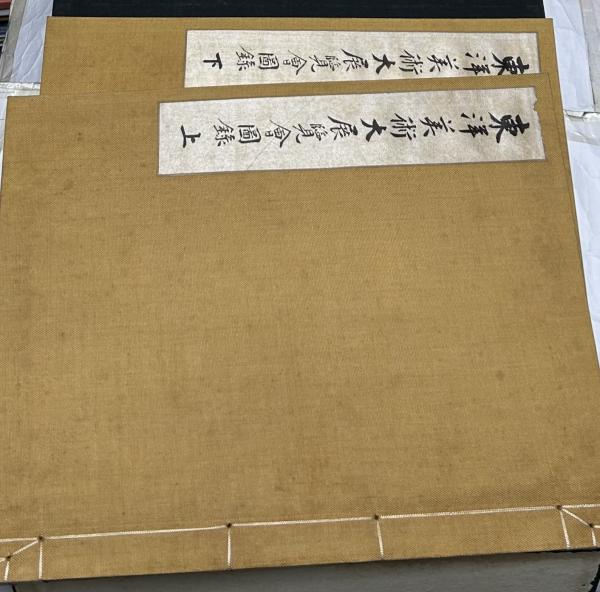 東洋美術大展覧會圖錄 上
東洋美術大展覧會圖錄 下